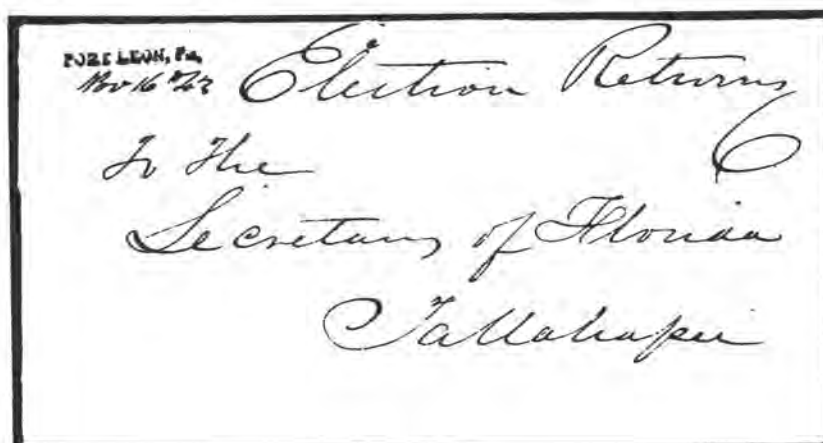 PORT LEON, Fl.
Nov 16
Election Returns
To the
Secretary of Florida
Tallahassee